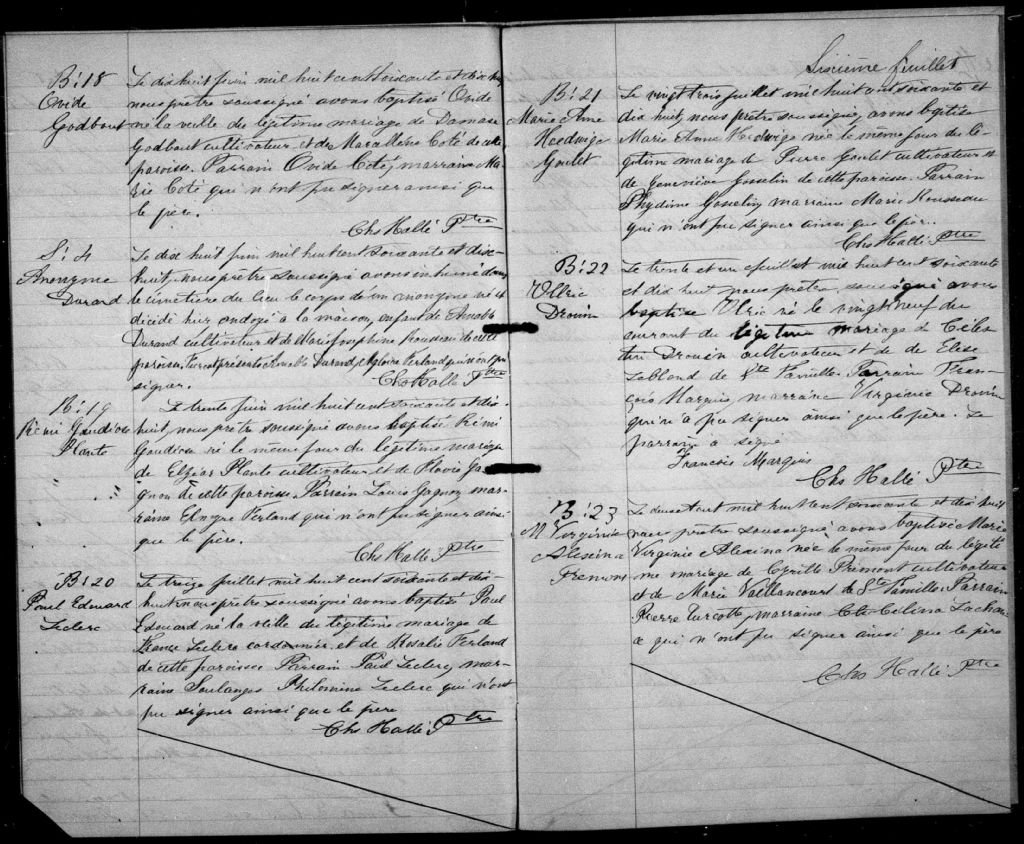 B: 18
Ovide
Godbout
Le dix huit juin mil huit cent soixante et dix huit
nous prêtre soussigné avons baptisé Ovide
né la veille du légitime mariage de Damase
Godbout cultivateur et de Marie Coté de cette
paroisse. Parrain Ovide Coté, marraine Ma-
rie Coté qui n'ont pu signer ainsi que
le père.
Chs Hallé Ptre
S: 4
Anonyme
Durand
Le dix huit juin mil huit cent soixante et dix-
huit, nous prêtre soussigné avons inhumé dans
le cimetière du lieu le corps d'un anonyme né et
décédé hier ondoyé à la maison, enfant de Amable
Durand cultivateur et de Marie Josephine Rousseau de cette
paroisse. Furent présents Amable Durand, Magloire Ferland qui n'ont pu
signer.
Chs Hallé Ptre
B: 19
Rémi Gaudiose
Plante
Le trente juin mil huit cent soixante et dix-
huit, nous prêtre soussigné avons baptisé Rémi
Gaudiose né le même jour du légitime mariage
de Elzéar Plante cultivateur et de Flavie Ga-
gnon de cette paroisse. Parrain Louis Gagnon mar-
raine Ferland qui n'ont pu signer ainsi
que le père.
Chs Hallé Ptre
B: 20
Paul Edouard
Leclerc
Le treize juillet mil huit cent soixante et dix-
huit nous prêtre soussigné avons baptisé Paul
Edouard né la veille du légitime mariage de
France Leclerc cordonnier et de Rosalie Ferland
de cette paroisse Parrain Paul Leclerc, mar-
raine Soulanges Philomine Leclerc qui n'ont
pu signer ainsi que le père
Chs Hallé Ptre
Sixième feuillet
B: 21
Marie Anne
Hedwige
Goulet
Le vingt trois juillet mil huit cent soixante et
dix huit, nous prêtre soussigné, avons baptisé
Marie Anne Hedwige née le même jour du lé-
gitime mariage de Pierre Goulet cultivateur et
de Geneviève Gosselin de cette paroisse. Parrain
Phydime Gosselin, marraine Marie Rousseau
qui n'ont pu signer ainsi que le père.
Chs Hallé Ptre
B: 22
Ulric
Drouin
Le trente et un juillet mil huit cent soixante
et dix huit nous prêtre, soussigné avons
baptisé Ulric né le vingt neuf du
courant du légitime mariage de Céles-
tin Drouin cultivateur et de de Elise
Leblond de Ste Famille Parrain Fran-
çois Marquis marraine Virginie Drouin
qui n'a pu signer ainsi que le père. Le
parrain a signé
Francois Marquis
Chs Hallé Ptre
B: 23
M Virginie
Alexina
Premont
Le douze aout mil huit cent soixante et dix huit
nous prêtre soussigné avons baptisé Marie
Virginie Alexina née le même jour du légiti
me mariage de Cyrille Premont cultivateur
et de Marie Vaillancourt de Ste Famille. Parrain
Pierre Turcotte, marraine Célina Lachan-
ce qui n'ont pu signer ainsi que le père
Chs Hallé Ptre